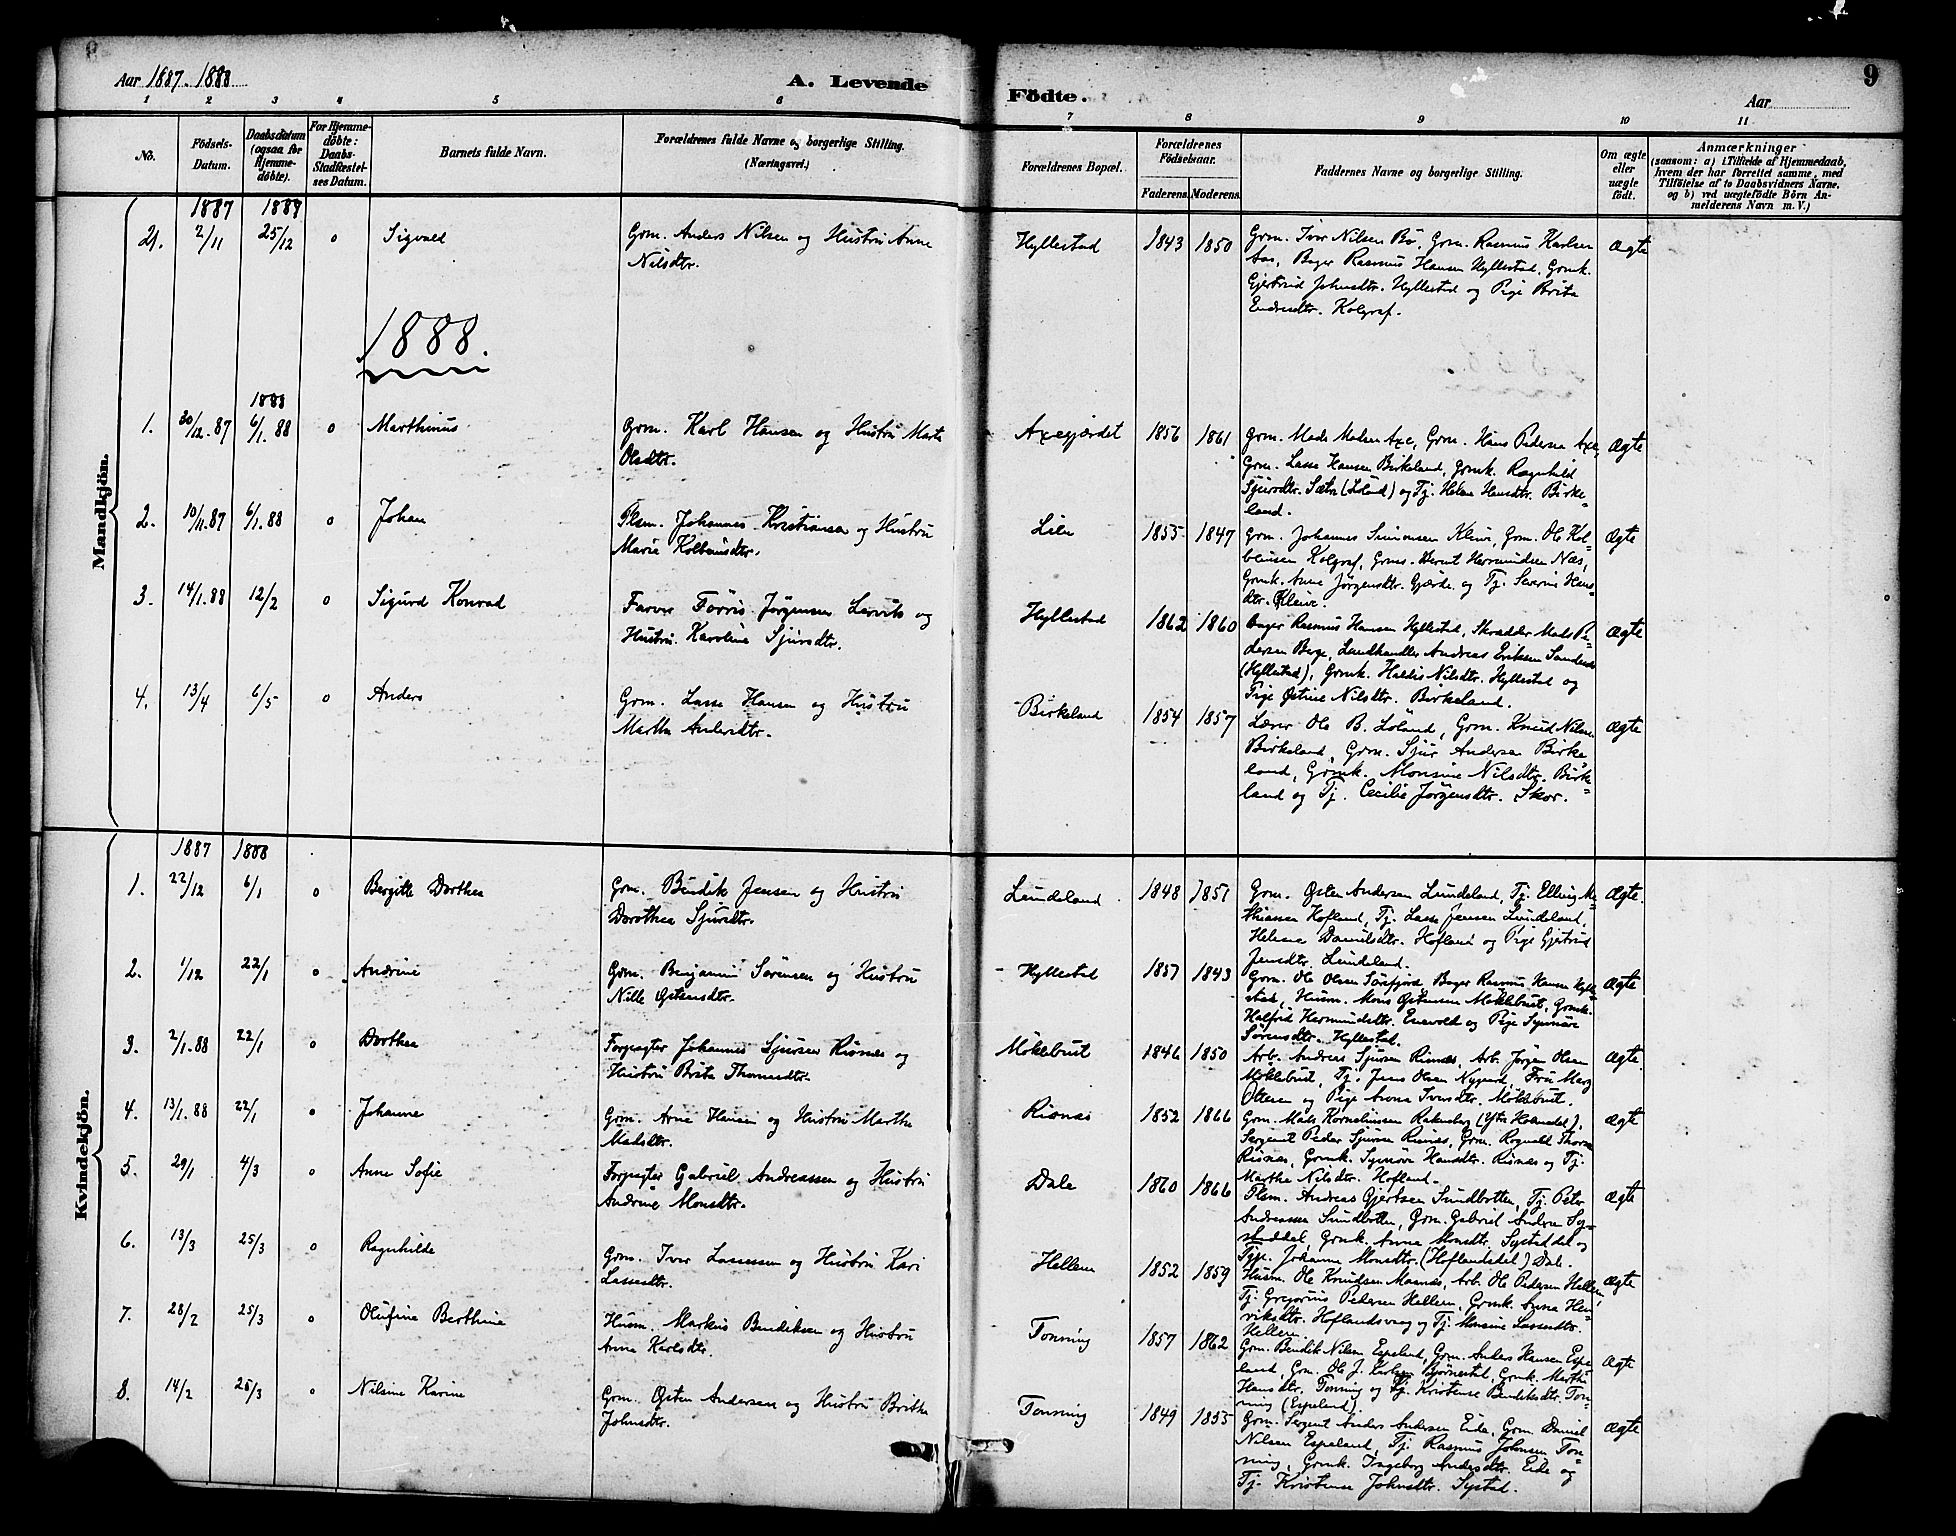 Aar 1887-1888
A. Levende
Födte.
9
Aar
1 2 3 4 5 6 7 8 9 10 11
No.
Födsels-
Datum.
Daabsdatum
(ogsaa for
Hjemme-
döbte).
For Hjemme-
döbte:
Daabs-
Stadfæstel-
ses Datum.
Barnets fulde Navn.
Forældrenes fulde Navne og borgerlige Stilling.
(Næringsvei.)
Forældrenes Bopæl.
Forældrenes
Födselsaar.
Faderens. Moderens.
Faddernes Navne og borgerlige Stilling.
Om ægte
eller
uægte
födt.
Anmærkninger
(saasom: a) i Tilfælde af Hjemmedaab,
hvem der har forrettet samme, med
Tilföielse af to Daabsvidners Navne,
og b) ved uægtefödte Börn An-
melderens Navn m. V.)
Mandkjön.
1887
21. 2/11 25/12 o Sigvald
Grm. Anders Nilsen og Hustru Anne
Nilsdtr.
Hyllestad 1843 1850
Grm. Ivar Nilsen Bö, Grm. Rasmus Karlsen
Aas, Bager Rasmus Hansen Hyllestad, Grmk.
Gjertrud Johnsdtr. Hyllestad og Pige Brita
Endresdtr. Kolgraf.
Ægte
1888.
1. 30/12.87 6/1.88 o Marthinus
Grm. Karl Hansen og Hustru Marte
Olsdtr.
Axegjærdet 1856 1861
Grm. Mads Madsen Axe, Grm. Hans Pedersen Axe,
Grm. Lasse Hansen Birkeland, Grmk. Ragnhild
Sjursdtr. Sætre (Löland) og Tj. Helene Hansdtr. Birke=
land.
Ægte
2. 10/11.87 6/1.88 o Johan
Plsm. Johannes Kristiansen og Hustru
Marie Kolbeinsdtr.
1855 1847
Grm. Johannes Simonsen Kleive, Grm. Ole Kol=
beinsen Kolgraf, Grms. Bernt Hermundsen Næs,
Grmk. Anne Jörgensdtr. Gjærde og Tj. Severine Hans
dtr. Kleive.
Ægte
3. 14/1.88 12/2 o Sigurd Konrad
Jörgensen og
Hustru Karoline Sjursdtr.
Hyllestad 1862 1860
Bager Rasmus Hansen Hyllestad, Skrædder Mads Pe=
dersen Berge, Landhandler Andreas Eriksen
(Hyllestad), Grmk. Haldis Nilsdtr. Hyllestad og
Pige Østine Nilsdtr. Birkeland.
Ægte
4. 13/4 6/5 o Anders
Grm. Lasse Hansen og Hustru
Martha Andersdtr.
Birkeland 1854 1857
Lærer Ole B. Löland, Grm. Knud Nilsen
Birkeland, Grm. Sjur Andersen Birke
land, Grmk. Monsine Nilsdtr. Birke=
land og Tj. Cecilie Jörgensdtr. Skor.
Ægte
Kvindekjön.
1887 1888
1. 22/12 6/1 o Bergitte Dorthea
Grm. Bendik Jensen og Hustru
Dorothea Sjursdtr.
Lundeland 1848 1851
Grm. Østen Andersen Lundeland, Tj. Elling Ma=
thiasen Hofland, Tj. Lasse Jensen Lundeland,
Helene Danielsdtr. Hofland og Pige Gjertrud
Jensdtr. Lundeland.
Ægte.
2. 1/12 22/1 o Andrine
Grm. Benjamin Sörensen og Hustru
Nille Østensdtr.
Hyllestad 1857 1843
Grm. Ole Olsen Sörefjord, Bager Rasmus Hansen Hylle=
stad, Husm. Mons Østensen Möklebust, Grmk.
Halfrid Hermundsdtr. Enevold og Pige Synnöve
Sörensdtr. Hyllestad.
Ægte
3. 2/1.88 22/1 o Dorthea
Forpagter Johannes Sjursen Risnes og
Hustru Brita Thomasdtr.
Möklebust 1846 1850
Arb. Andreas Sjursen Risnæs, Arb. Jörgen Olsen
Möklebust, Tj. Jens Olsen Nygaard, Fru Mary
Ottesen og Pige Anna Iversdtr. Möklebust.
Ægte
4. 13/1.88 22/1 o Johanne
Grm. Arne Hansen og Hustru Martha
Madsdtr.
Risnæs 1852 1866
Grm. Mads Korneliussen Rakneberg (Ytre Holmedal),
Sergeant Peder Sjursen Risnæs, Grm. Rognald Thomæ
Risnæs, Grmk. Synnöve Hansdtr. Risnæs og Tj.
Martha Nilsdtr. Hofland.
Ægte
5. 29/1 4/3 o Anne Sofie
Forpagter Gabriel Andreassen og Hustru
Andrine Monsdtr.
Dale 1860 1866
Plsm. Andreas Gjertsen Sundbotten, Tj. Peter
Andreassen Sundbotten, Grm. Gabriel Andersen
Grmk. Anna Monsdtr. Systaddal og
Pige Johanne Monsdtr. (Hoflandsdal) Dale.
Ægte
6. 13/3 25/3 o Ragnhilde
Grm. Iver Lassesen og Hustru Kari
Lassesdtr.
Hellem 1852 1859
Husm. Ole Knudsen Masnæs, Arb. Ole Pedersen Hellem,
Tj. Gregorius Pedersen Hellem, Grmk. Anna Hen=
viksdtr. Hoflandsvaag og Tj. Monsine Lassesdtr.
Hellem.
Ægte
7. 28/2 25/3 o Olufine Berthine
Husm. Markus Bendiksen og Hustru
Anna Karlsdtr.
Tonning 1857 1862
Grm. Bendik Nilsen Espeland, Grm. Anders Hansen Espe
land, Grm. Ole J. Björnestal, Grmk. Martha
Hansdtr. Tonning og Tj. Kristense Bendiksdtr. Ton=
ning (Espeland).
Ægte
8. 14/2 25/3 o Nilsine Karine
Grm. Østen Andersen og Hustru Brithe
Johnsdtr.
Tonning 1849 1855
Grm. Sergent Anders Andersen Eide, Grm. Daniel
Nilsen Espeland, Tj. Rasmus Johnsen Ton=
ning, Grmk. Ingeborg Andersdtr. Eide og
Tj. Kristense Johnsdtr. Systad.
Ægte